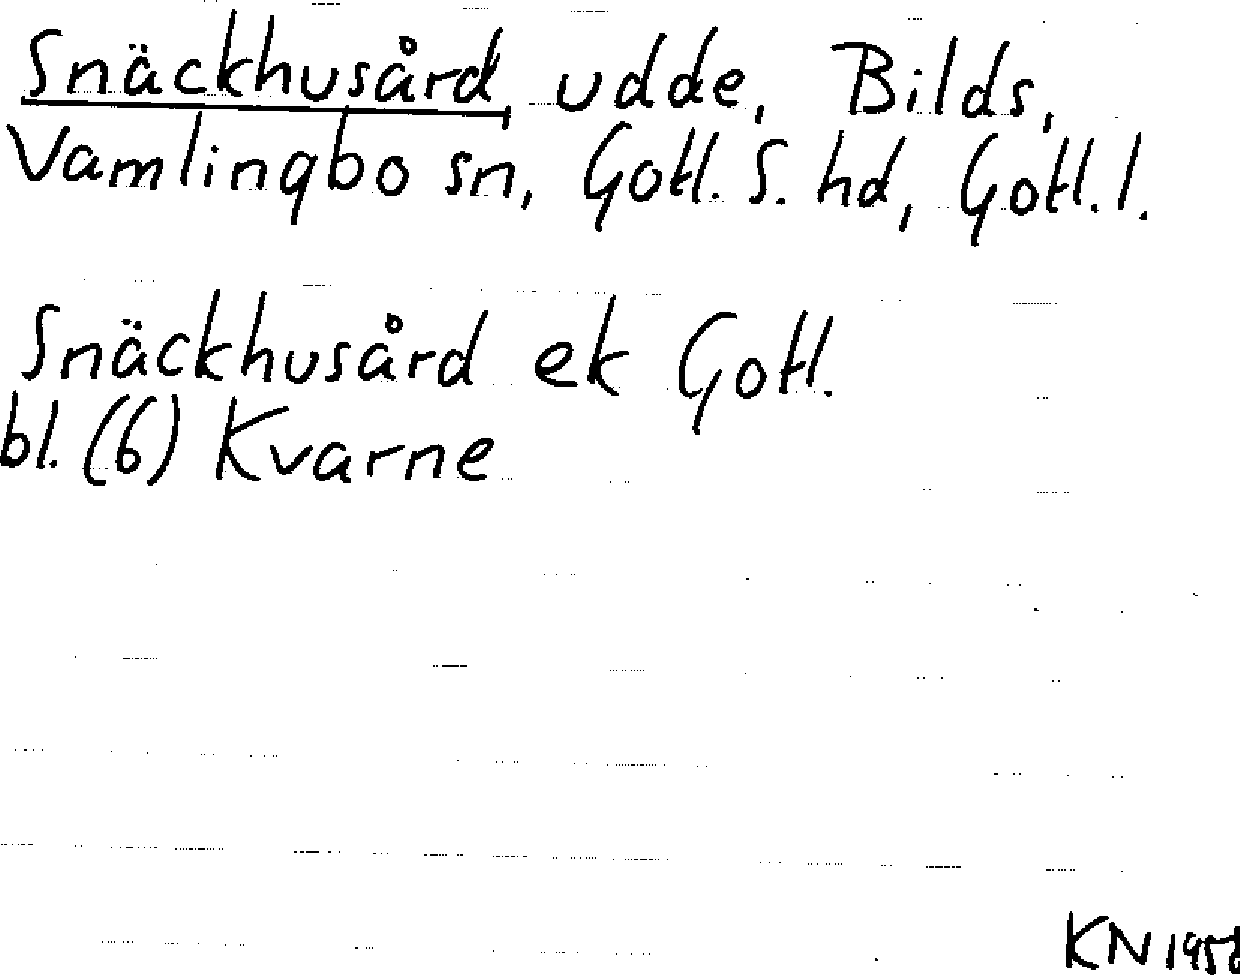 Snäckhusård, udde, Bilds,
Vamlingbo sn, Gotl. S. hd, Gotl. l.
Snäckhusård ek Gotl.
bl. (6) Kvarne
KN